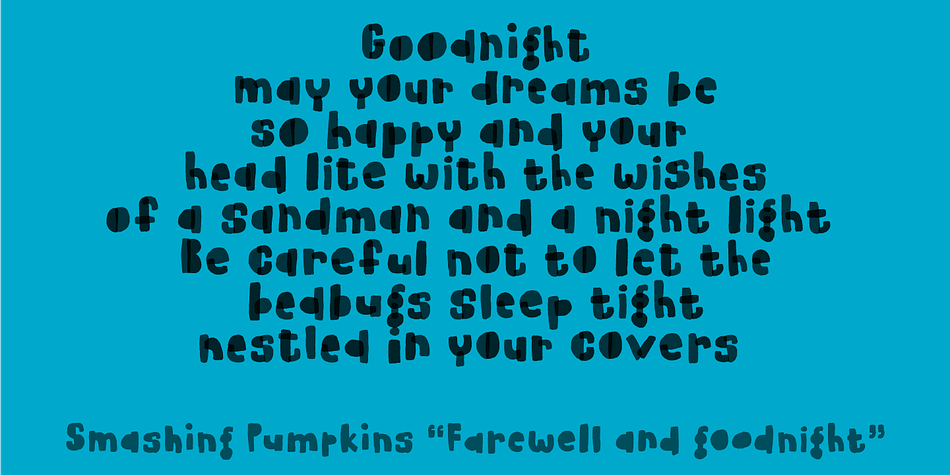 Goodnight
may your dreams be
so happy and your
head lite with the wishes
of a sandman and a night light
Be careful not to let the
bedbugs sleep tight
nestled in your covers
Smashing Pumpkins “Farewell and goodnight”